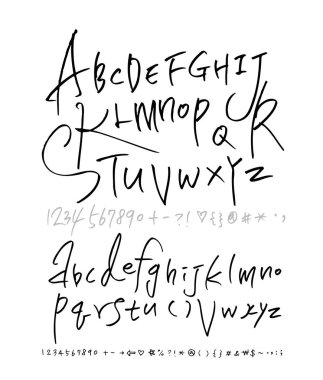 ABCDEFGHIJ
KLMNOPQR
STUVWXYZ
1234567890+-?!♡{}@#*·;
abcdefghijklmno
pqrstu()vwxyz